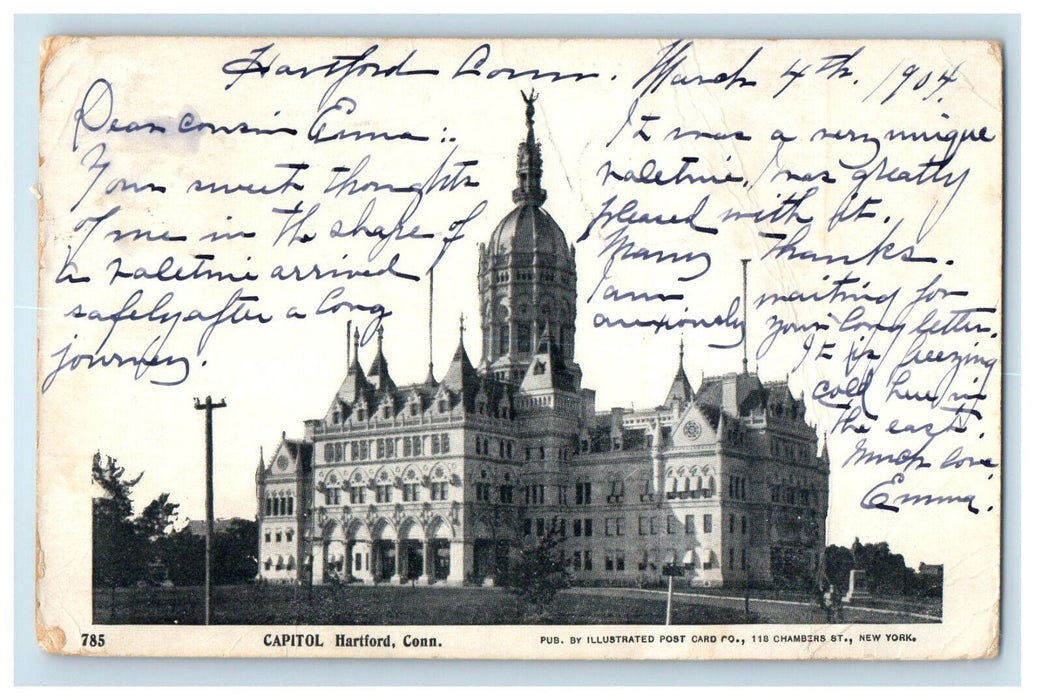 Hartford Conn. March 4th. 1904.
Dear cousin Emma:.
Your sweet thoughts
of me in the shape of
a valetine arrived
safely after a long
journey.
It was a very unique
valetine. I was greatly
pleased with it.
Many thanks.
I am waiting for
anxiously your long letter.
It is freezing
cold here in
the east.
Much love
Emma.
785 CAPITOL Hartford, Conn. PUB. BY ILLUSTRATED POST CARD CO., 118 CHAMBERS ST., NEW YORK.